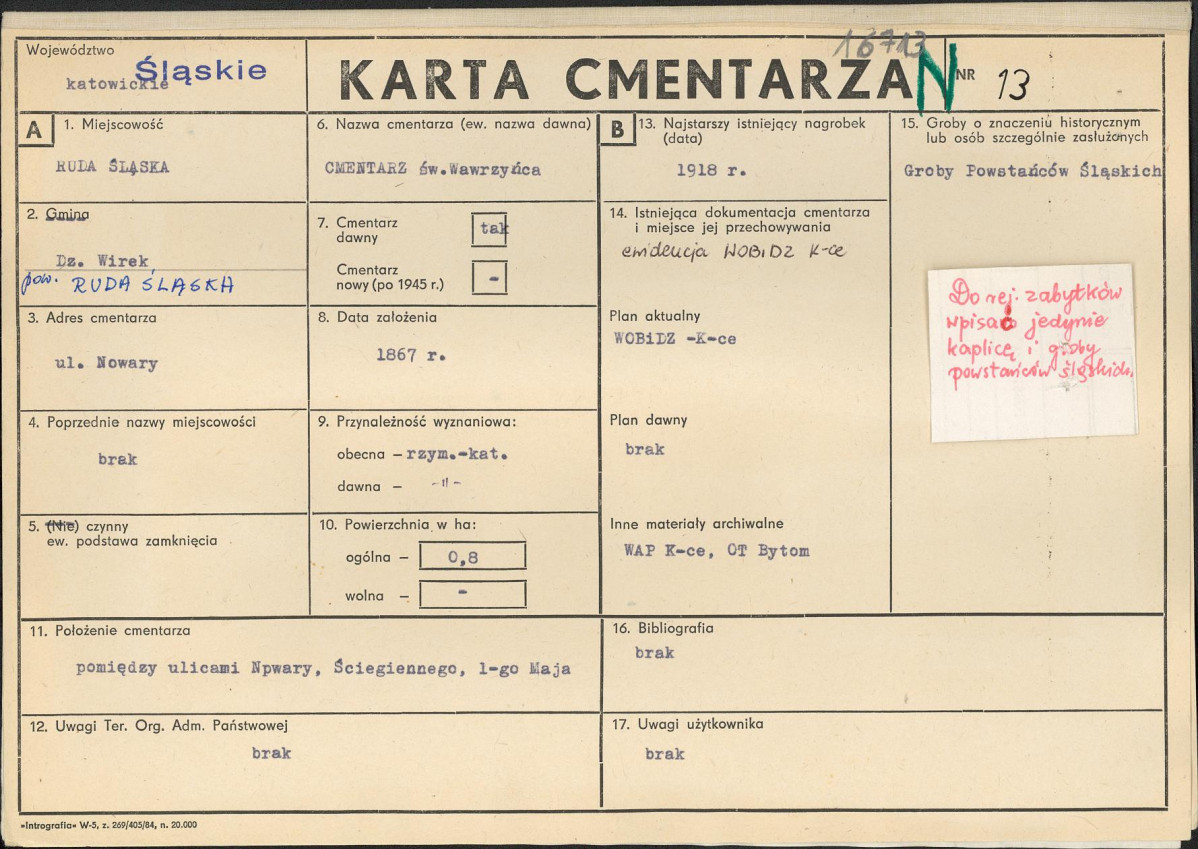 Województwo
katowickie Śląskie
KARTA CMENTARZA
16713
N
NR 13
A
1. Miejscowość
RUDA ŚLĄSKA
2. Gmina
Dz. Wirek
pow. RUDA ŚLĄSKA
3. Adres cmentarza
ul. Nowary
4. Poprzednie nazwy miejscowości
brak
5. (Nie) czynny
ew. podstawa zamknięcia
6. Nazwa cmentarza (ew. nazwa dawna)
CMENTARZ św.Wawrzyńca
7. Cmentarz
dawny
tak
Cmentarz
nowy (po 1945 r.)
-
8. Data założenia
1867 r.
9. Przynależność wyznaniowa:
obecna – rzym.-kat.
dawna – -"-
10. Powierzchnia w ha:
ogólna – 0,8
wolna – -
11. Położenie cmentarza
pomiędzy ulicami Npwary, Ściegiennego, 1-go Maja
12. Uwagi Ter. Org. Adm. Państwowej
brak
B
13. Najstarszy istniejący nagrobek
(data)
1918 r.
14. Istniejąca dokumentacja cmentarza
i miejsce jej przechowywania
ewidencja WOBiDZ K-ce
Plan aktualny
WOBiDZ -K-ce
Plan dawny
brak
Inne materiały archiwalne
WAP K-ce, OT Bytom
15. Groby o znaczeniu historycznym
lub osób szczególnie zasłużonych
Groby Powstańców Śląskich
Do rej. zabytków
wpisać jedynie
kaplicę i groby
powstańców śląskich.
16. Bibliografia
brak
17. Uwagi użytkownika
brak
»Intrografia« W-5, z. 269/405/84, n. 20.000